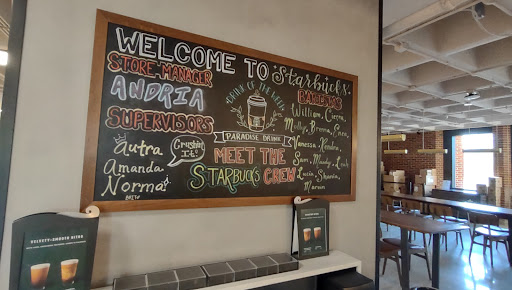 WELCOME TO Starbucks
STORE MANAGER
ANDRIA
SUPERVISORS
Autra
Amanda
Norma
Crushin
It!
DRINK OF THE WEEK
PARADISE DRINK
MEET THE
STARBUCKS CREW
BARISTAS
William, Cierra,
Molly, Brenna, Cara,
Vanessa, Kendra,
Sam, Maddy, Leah
Lucia, Shania,
Marian
VELVETY-SMOOTH NITRO